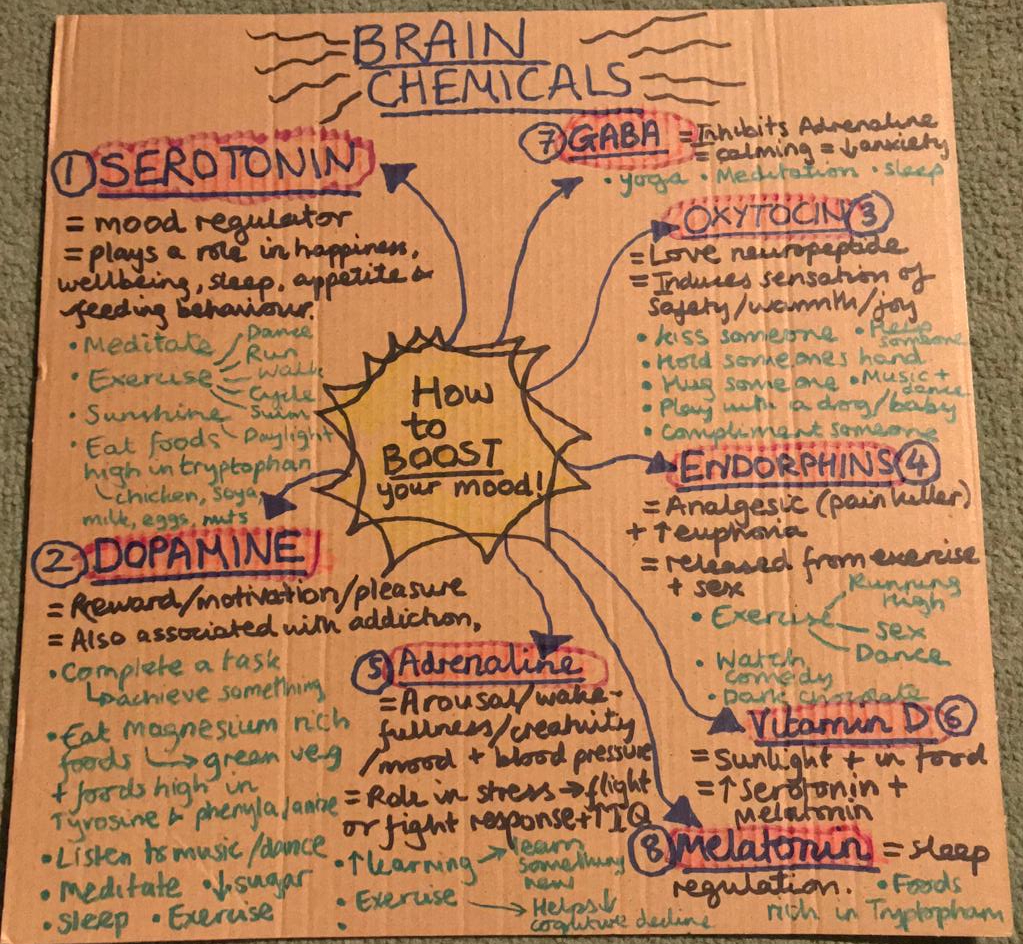 BRAIN
CHEMICALS
① SEROTONIN
= mood regulator
= plays a role in happiness,
wellbeing, sleep, appetite &
feeding behaviour.
• Meditate
• Exercise
Dance
Run
Walk
Cycle
Swim
• Sunshine
Daylight
• Eat foods
high in tryptophan
chicken, soya,
milk, eggs, nuts
② DOPAMINE
= Reward/motivation/pleasure
= Also associated with addiction,
• Complete a task
↳achieve something
• Eat magnesium rich
foods ↳→ green veg
+ foods high in
Tyrosine & phenylalanine
• Listen to music/dance
• Meditate • ↓sugar
• Sleep • Exercise
How
to
BOOST
your mood!
⑦ GABA = Inhibits Adrenaline
= calming = ↓anxiety
• yoga • Meditation • sleep
OXYTOCIN ③
= Love neuropeptide
= Induces sensation of
safety/warmth/joy
• Kiss someone
• Help
someone
• Hold someones hand
• Hug someone • Music +
dance
• Play with a dog/baby
• Compliment someone
ENDORPHINS ④
= Analgesic (pain killer)
+ ↑euphoria
= released from exercise
+ sex
• Exercise
Running
High
Sex
Dance
• Watch
comedy
• Dark chocolate
⑤ Adrenaline
= Arousal/wake-
fullness/creativity
/mood + blood pressure
= Role in stress → flight
or fight response + ↑IQ
• ↑learning → learn
something
new
• Exercise
→ Helps ↓
cognitive decline
•
Vitamin D ⑥
= Sunlight + in food
= ↑Serotonin +
Melatonin
⑧ Melatonin = sleep
regulation.
• Foods
rich in Tryptopham